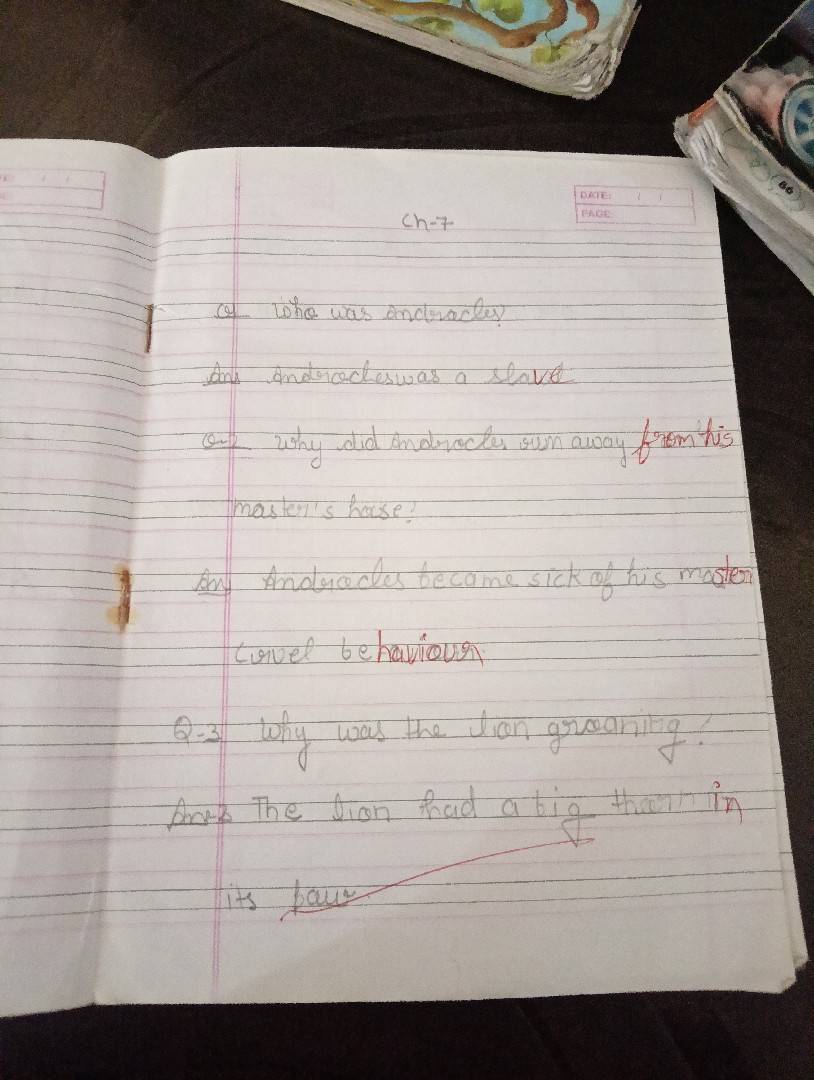 DATE: / /
PAGE:
Ch-7
Q1 Who was Androcles?
Ans Androcles was a slave
Q-2 Why did Androcles run away from his
master's house?
Ans Androcles became sick of his master
cruel behaviour
Q-3 Why was the lion groaning?
Ans The lion had a big thorn in
its paw
86